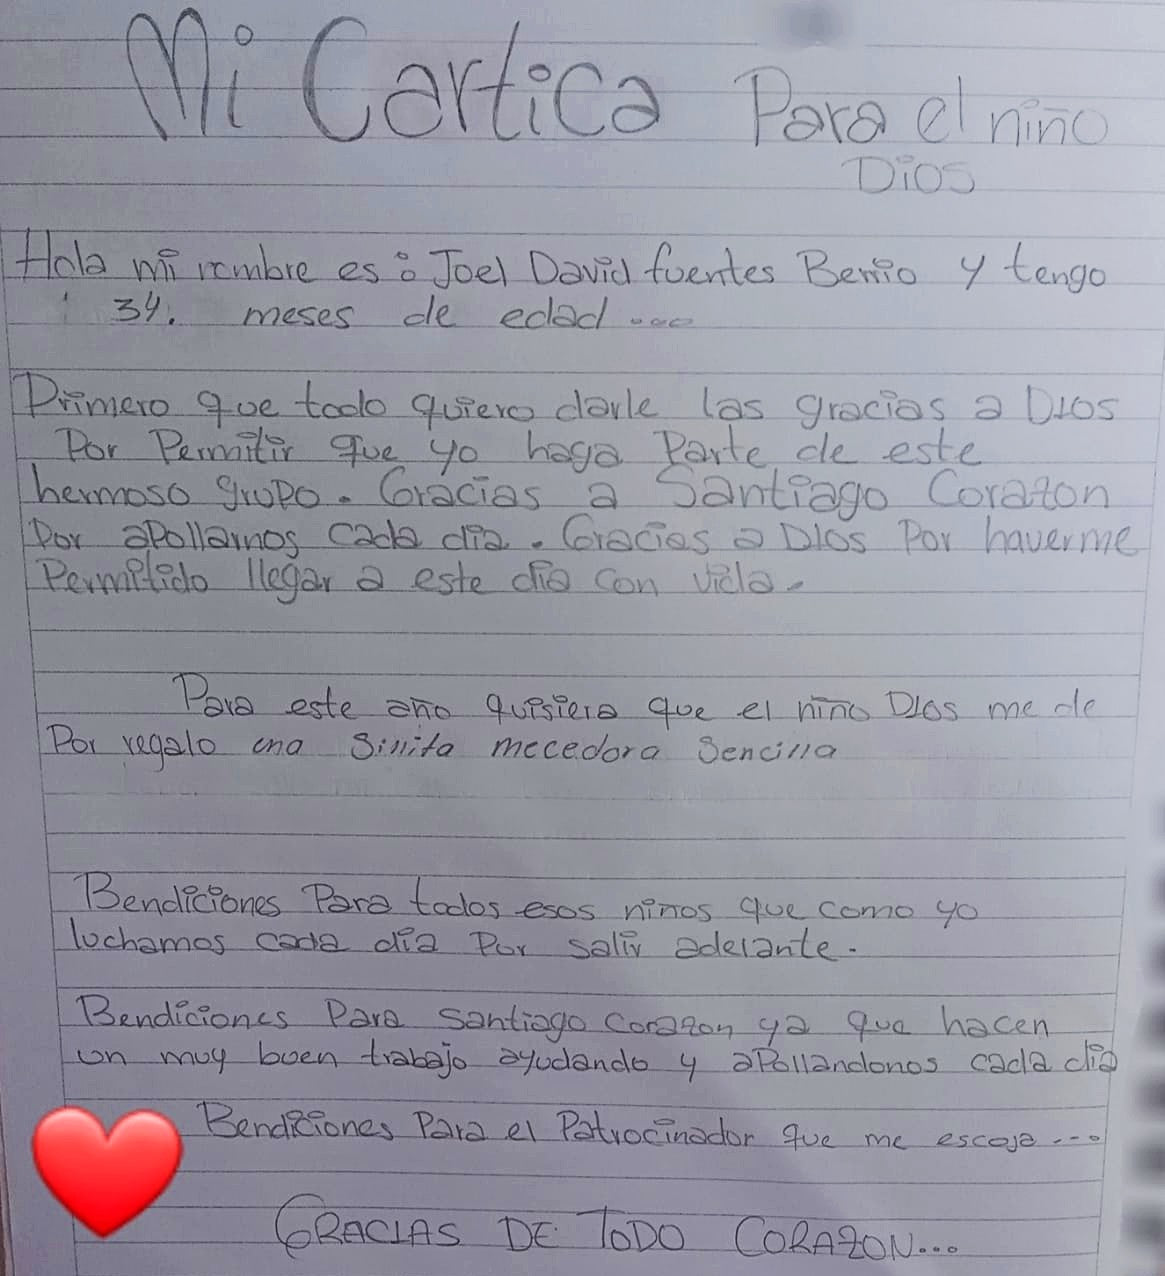 Mi Cartica Para el niño
Dios
Hola mi nombre es: Joel David fuentes Berrio y tengo
34. meses de edad ...
Primero que todo quiero darle las gracias a Dios
Por Permitir que yo haga Parte de este
hermoso grupo. Gracias a Santiago Corazon
Por apollarnos cada dia. Gracias a Dios Por haverme
Permitido llegar a este dia con vida.
Para este año quisiera que el niño Dios me de
Por regalo una Sillita mecedora Sencilla
Bendiciones Para todos esos niños que como yo
luchamos cada dia Por salir adelante.
Bendiciones Para Santiago Corazon ya que hacen
un muy buen trabajo ayudando y apollandonos cada dia
Bendiciones Para el Patrocinador que me escoja ...
GRACIAS DE TODO CORAZON...